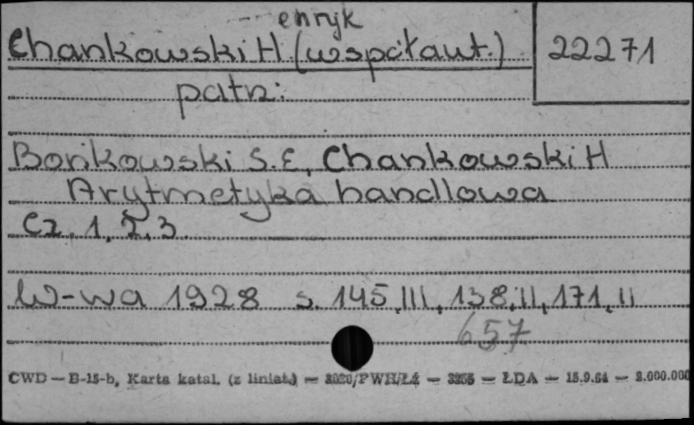 enryk
Chankowski H. (współaut.) 22271
patrz:
Bońkowski S.E, Chankowski H
Arytmetyka handlowa
Cz. 1, 2, 3.
W-wa 1928 s. 145, III, 138, II, 171, II
657
CWD — B-15-b, Karta katal. (z liniat.) — — ŁDA — 15.9.64 — 2.000.000